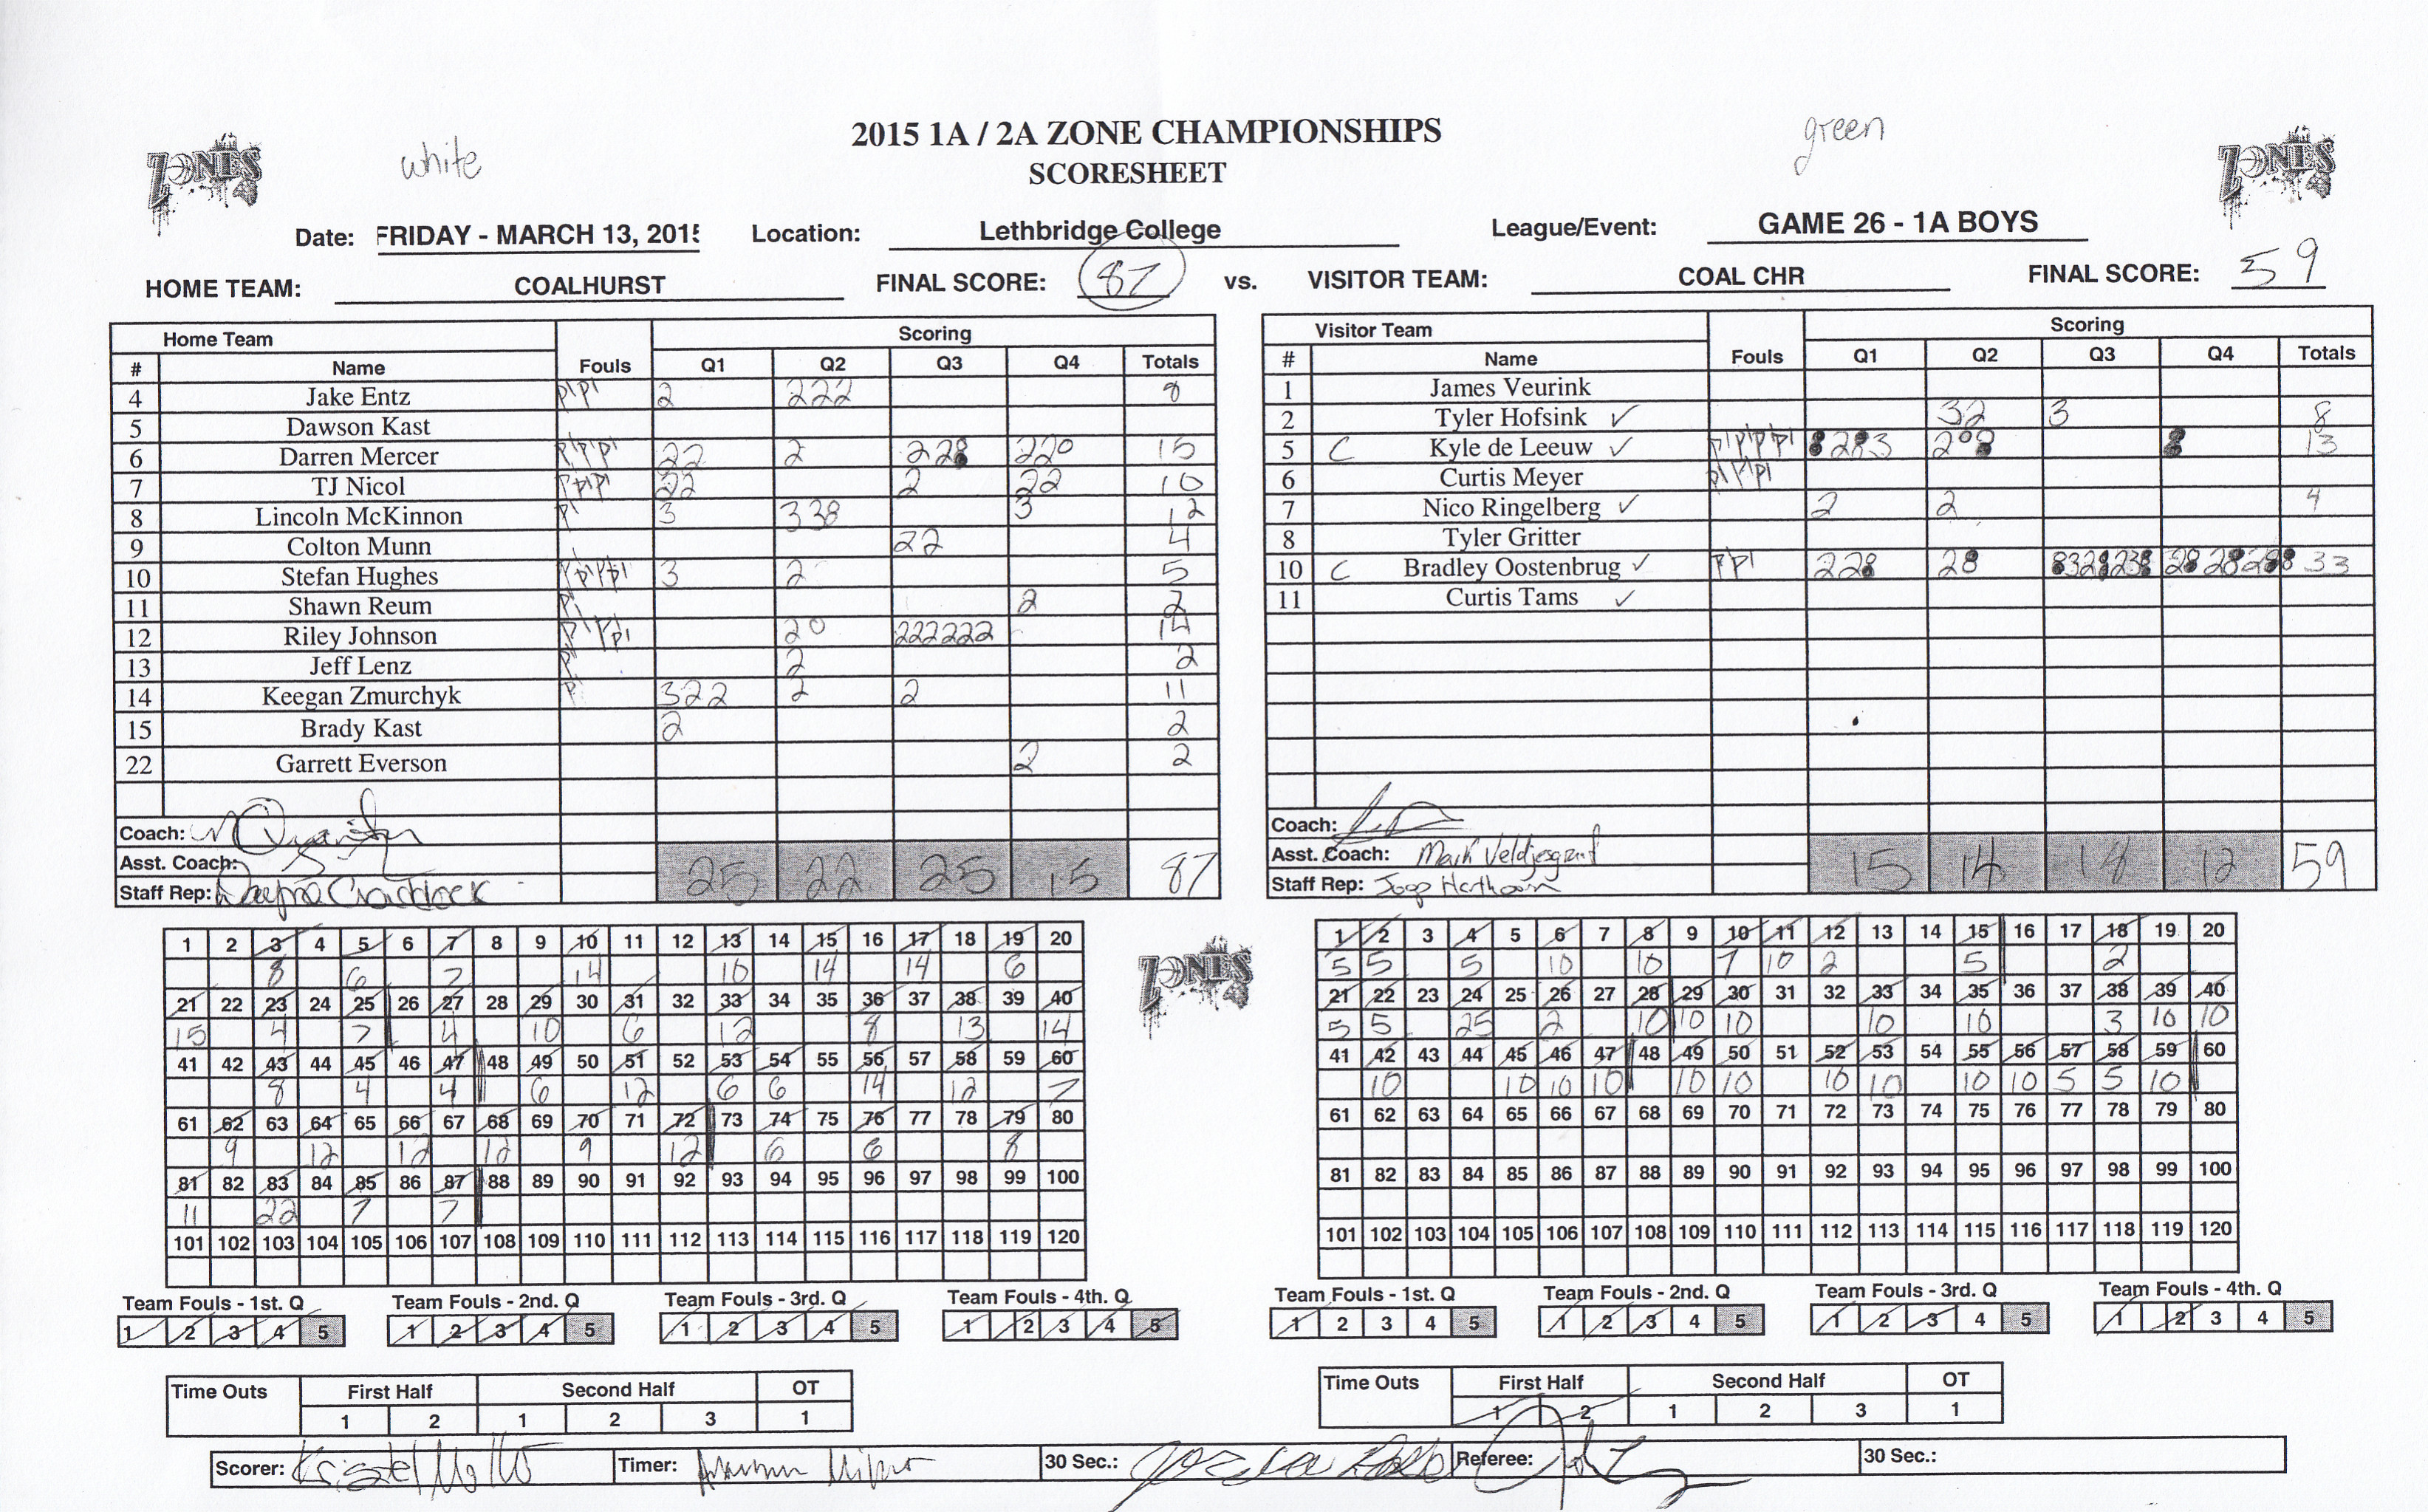 white
green
2015 1A / 2A ZONE CHAMPIONSHIPS
SCORESHEET
ZONES
ZONES
Date: FRIDAY - MARCH 13, 2015 Location: Lethbridge College League/Event: GAME 26 - 1A BOYS
HOME TEAM: COALHURST FINAL SCORE: 87 vs. VISITOR TEAM: COAL CHR FINAL SCORE: 59
Home Team Scoring
# Name Fouls Q1 Q2 Q3 Q4 Totals
4 Jake Entz PP 2 222 8
5 Dawson Kast
6 Darren Mercer PPP 22 2 22 220 15
7 TJ Nicol PPP 22 2 22 10
8 Lincoln McKinnon P 3 33 3 12
9 Colton Munn 22 4
10 Stefan Hughes PPPP 3 2 5
11 Shawn Reum P 2 2
12 Riley Johnson PPP 20 222222 14
13 Jeff Lenz P 2 2
14 Keegan Zmurchyk P 322 2 2 11
15 Brady Kast 2 2
22 Garrett Everson 2 2
Coach:
Asst. Coach:
Staff Rep:
25 22 25 15 87
Visitor Team Scoring
# Name Fouls Q1 Q2 Q3 Q4 Totals
1 James Veurink
2 Tyler Hofsink ✓ 32 3 8
5 C Kyle de Leeuw ✓ PPPP 13
6 Curtis Meyer PPP
7 Nico Ringelberg ✓ 2 2 4
8 Tyler Gritter
10 C Bradley Oostenbrug ✓ PP 33
11 Curtis Tams ✓
Coach:
Asst. Coach: Mark
Staff Rep:
15 14 18 12 59
1 2 3 4 5 6 7 8 9 10 11 12 13 14 15 16 17 18 19 20
8 6 7 14 10 14 14 6
21 22 23 24 25 26 27 28 29 30 31 32 33 34 35 36 37 38 39 40
15 4 7 4 10 6 12 8 13 14
41 42 43 44 45 46 47 48 49 50 51 52 53 54 55 56 57 58 59 60
8 4 4 6 12 6 6 14 12 7
61 62 63 64 65 66 67 68 69 70 71 72 73 74 75 76 77 78 79 80
9 12 12 12 9 12 6 6 8
81 82 83 84 85 86 87 88 89 90 91 92 93 94 95 96 97 98 99 100
11 22 7 7
101 102 103 104 105 106 107 108 109 110 111 112 113 114 115 116 117 118 119 120
ZONES
1 2 3 4 5 6 7 8 9 10 11 12 13 14 15 16 17 18 19 20
5 5 5 10 10 7 10 2 5 2
21 22 23 24 25 26 27 28 29 30 31 32 33 34 35 36 37 38 39 40
5 5 25 2 10 10 10 10 10 3 10 10
41 42 43 44 45 46 47 48 49 50 51 52 53 54 55 56 57 58 59 60
10 10 10 10 10 10 10 10 10 10 5 5 10
61 62 63 64 65 66 67 68 69 70 71 72 73 74 75 76 77 78 79 80
81 82 83 84 85 86 87 88 89 90 91 92 93 94 95 96 97 98 99 100
101 102 103 104 105 106 107 108 109 110 111 112 113 114 115 116 117 118 119 120
Team Fouls - 1st. Q Team Fouls - 2nd. Q Team Fouls - 3rd. Q Team Fouls - 4th. Q
1 2 3 4 5 1 2 3 4 5 1 2 3 4 5 1 2 3 4 5
Team Fouls - 1st. Q Team Fouls - 2nd. Q Team Fouls - 3rd. Q Team Fouls - 4th. Q
1 2 3 4 5 1 2 3 4 5 1 2 3 4 5 1 2 3 4 5
Time Outs First Half Second Half OT
1 2 1 2 3 1
Time Outs First Half Second Half OT
1 2 1 2 3 1
Scorer: Timer: 30 Sec.: Referee: 30 Sec.: